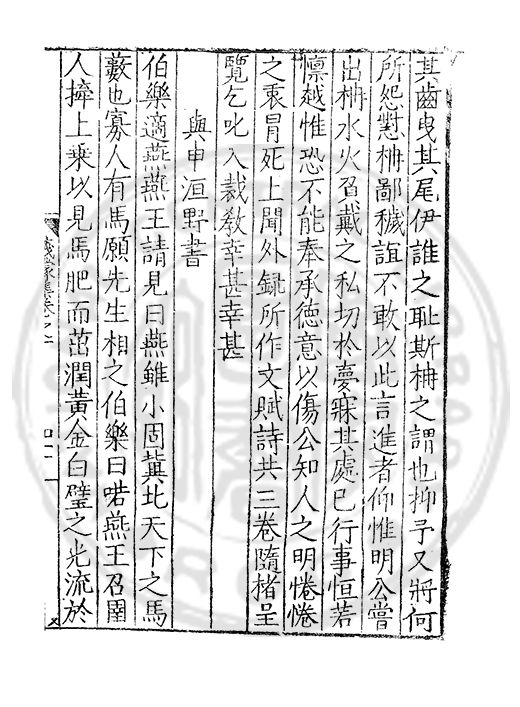 其齒曳其尾伊誰之耻斯枏之謂也抑予又將何
所怨懟枏鄙穢誼不敢以此言進者仰惟明公嘗
出枏水火負戴之私切於夢寐其處已行事恒若
懔越惟恐不能奉承德意以傷公知人之明惓惓
之衷冐死上聞外録所作文賦詩共三卷隨楮呈
覽乞叱入裁教幸甚幸甚
與申洹野書
伯樂適燕燕王請見曰燕雖小固冀北天下之馬
藪也寡人有馬願先生相之伯樂曰喏燕王召圉
人捧上乗以見馬肥而茁潤黃金白璧之光流於
集卷之二